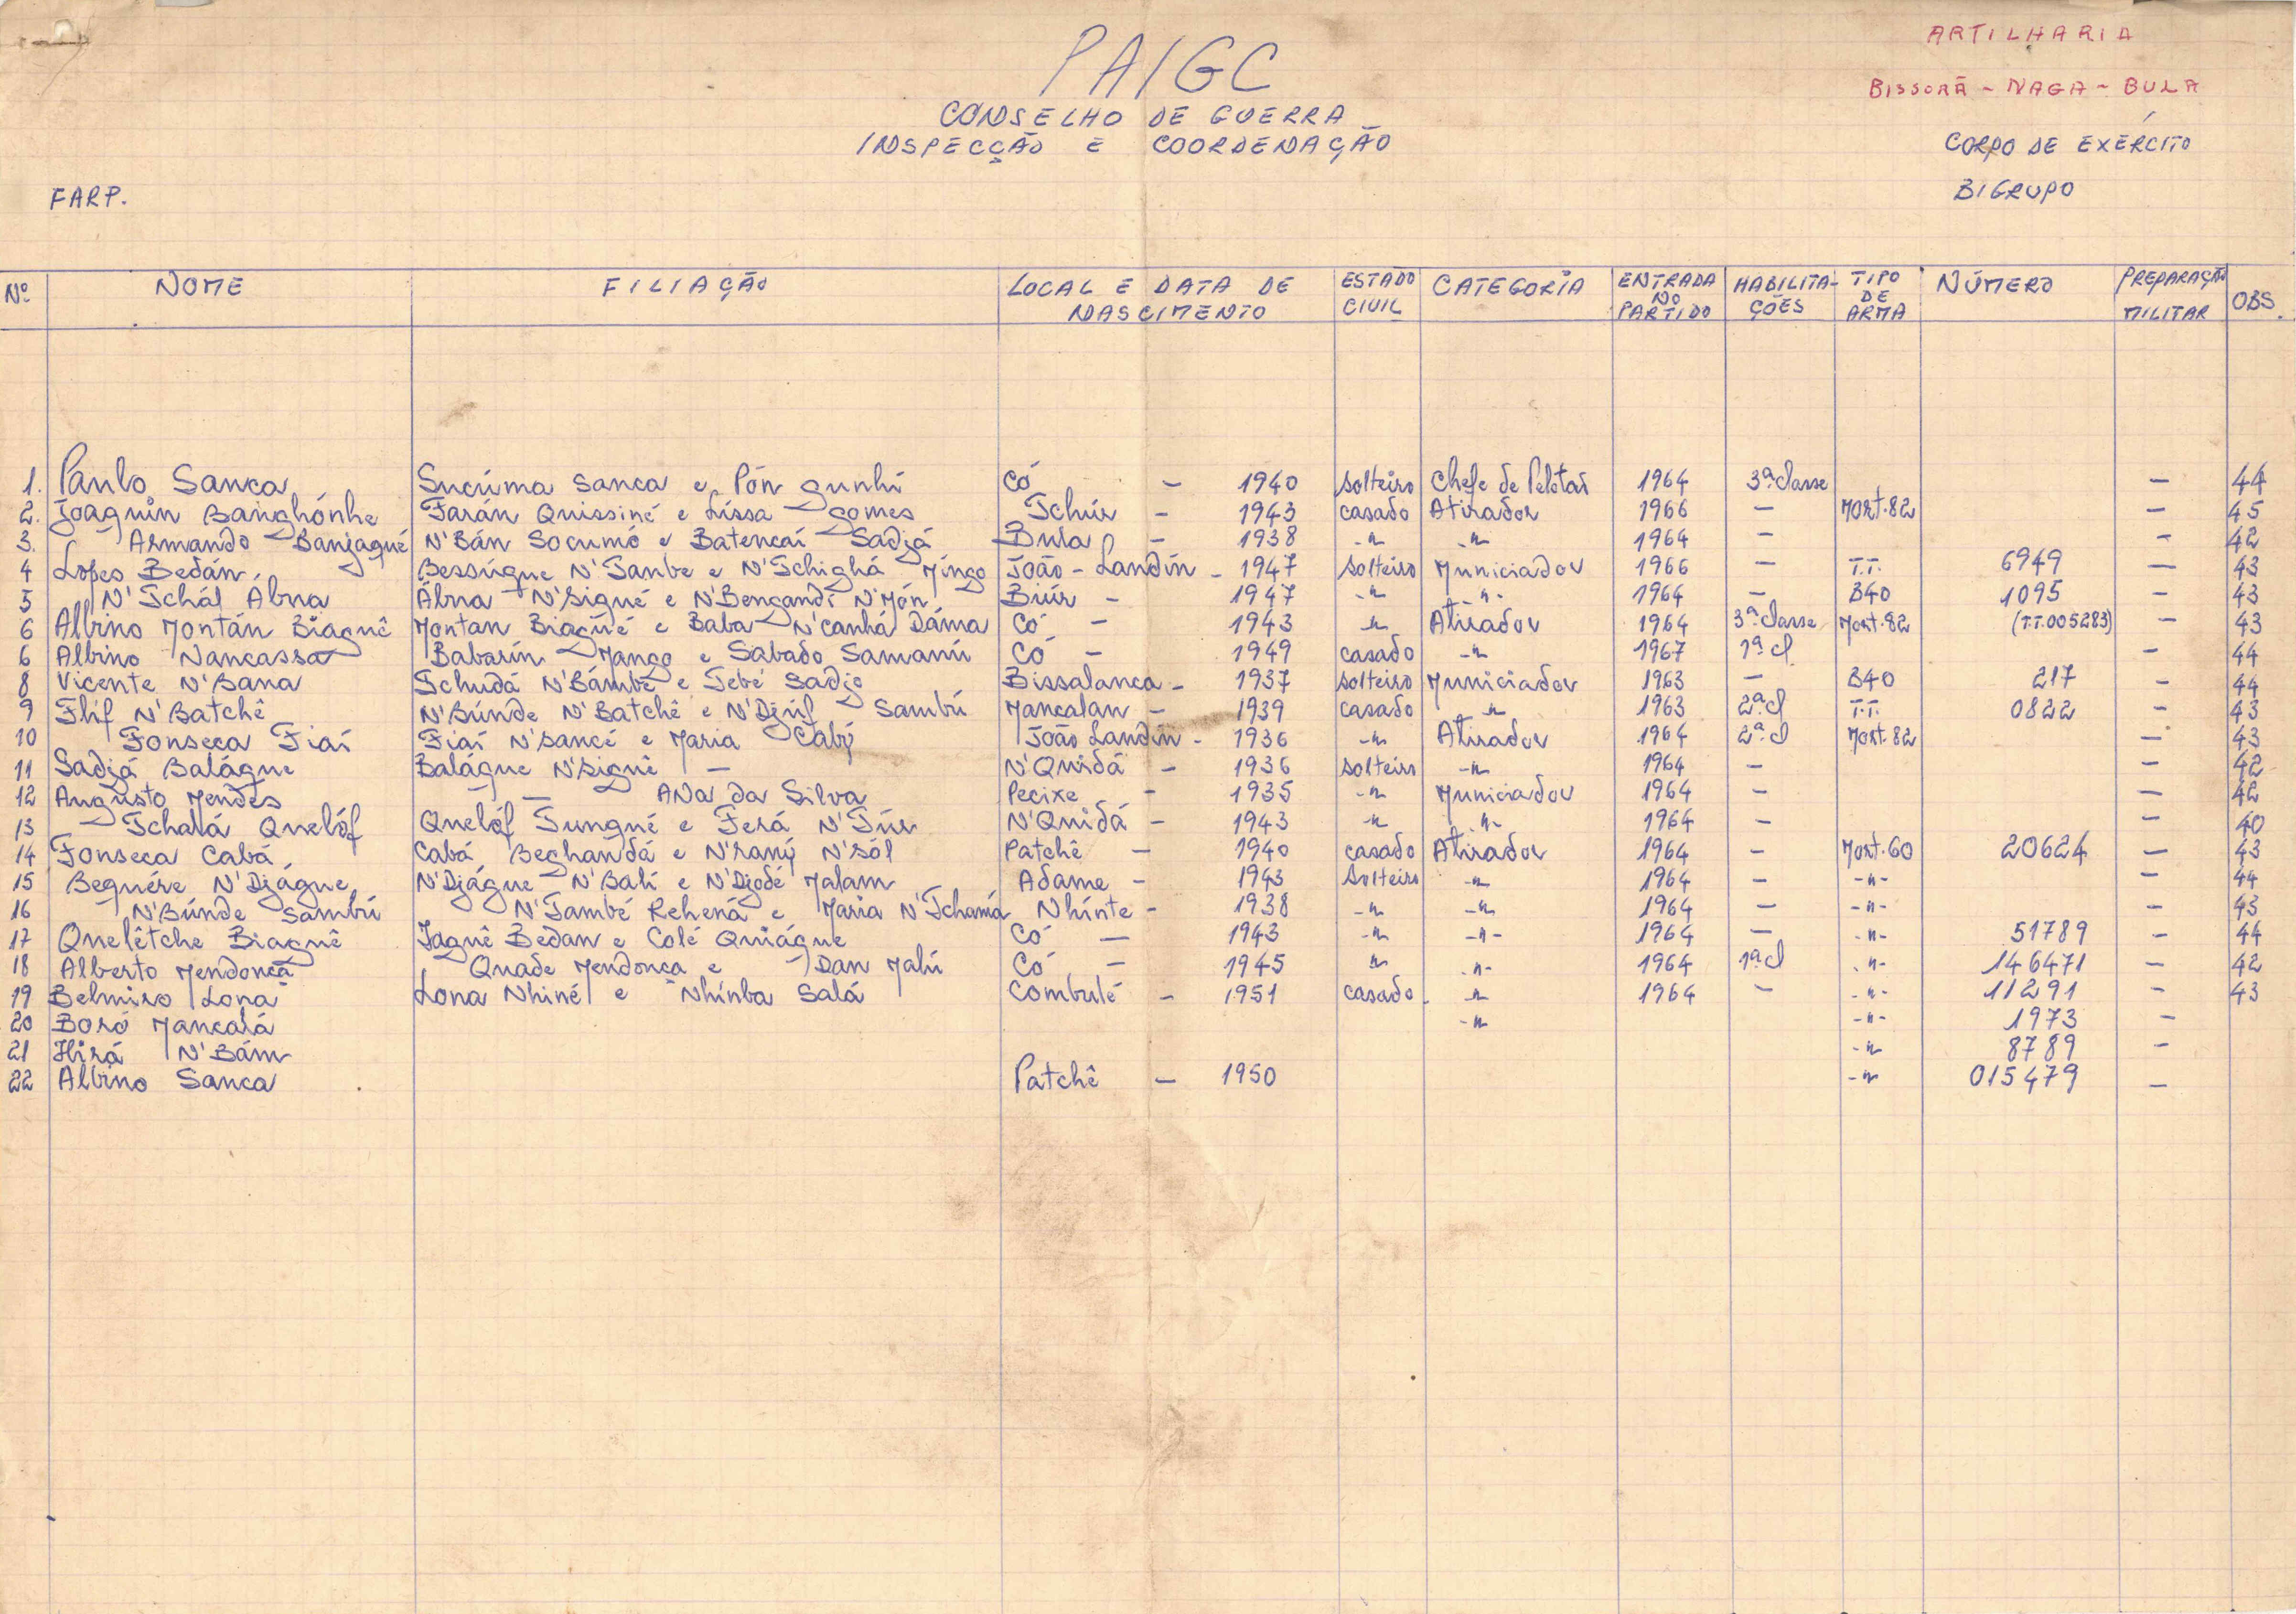 ARTILHARIA
PAIGC
BISSORÃ - NAGA - BULA
CONSELHO DE GUERRA
INSPECÇÃO E COORDENAÇÃO
CORPO DE EXÉRCITO
FARP.
BIGRUPO
Nº NOME FILIAÇÃO LOCAL E DATA DE NASCIMENTO ESTADO CIVIL CATEGORIA ENTRADA NO PARTIDO HABILITA-ÇÕES TIPO DE ARMA NÚMERO PREPARAÇÃO MILITAR OBS.
1. Paulo Sanca Sucúma Sanca e Pón Gunhi Có - 1940 solteiro Chefe de Pelotaõ 1964 3ª classe - 44
2. Joaquin Banghónhe Farán Quissiné e Lissa gomes Tchúr - 1943 casado Atirador 1966 - Mort.82 - 45
3. Armando Banjagué N'Bán Socumó e Batencaí Sadjá Bula - 1938 -"- -"- 1964 - - 42
4 Lopes Bedán. Bessúgue N'Tambe e N'Tchighá Mingo João-Landín - 1947 solteiro Municiador 1966 - T.T. 6949 - 43
5 N'Tchál Abna Ábna N'Sigué e N'Bengandí N'Món Biúr - 1947 -"- -"- 1964 - B40 1095 - 43
6 Albino Montán Biaguê Montan Biagué e Baba N'canhá Dáma Có - 1943 -"- Atirador 1964 3ª classe Mort.82 (T.T.005283) - 43
6 Albino Nancassa Babarín Mango e Sabado Samanú Có - 1949 casado -"- 1967 1ª cl. - 44
8 Vicente N'Bana Tchudá N'Bámbé e Tebé Sadjo Bissalanca - 1937 solteiro Municiador 1963 - B40 217 - 44
9 Flif N'Batchê N'Búnde N'Batchê e N'Djúf Sambú Mancalan - 1939 casado -"- 1963 2ª cl T.T. 0822 - 43
10 Fonseca Fiaí Fiaí N'sancé e Maria Cabý João Landín - 1936 -"- Atirador 1964 2ª cl Mort.82 - 43
11 Sadjá Balágue Balágue N'Siguê - N'Quidá - 1936 solteiro -"- 1964 - - 42
12 Augusto Mendes - ANa da Silva Pecixe - 1935 -"- Municiador 1964 - - 42
13 Tchalá Quelóf Quelóf Tungué e Ferá N'Túr N'Quidá - 1943 -"- -"- 1964 - - 40
14 Fonseca Cabá, Cabá Beghandá e N'raný N'sól Patchê - 1940 casado Atirador 1964 - Mort.60 20624 - 43
15 Beguére N'Djágue N'Djágue N'Balí e N'Djodé Malam Adame - 1943 Solteiro -"- 1964 - -"- - 44
16 N'Búnde Sambú N'També Rehená e Maria N'Tchamá Nhínte - 1938 -"- -"- 1964 - -"- - 43
17 Quelêtche Biaguê Iaguê Bedan e Colé Quiágue Có - 1943 -"- -"- 1964 - -"- 51789 - 44
18 Alberto Mendonça Quade Mendonça e Dan Malú Có - 1945 -"- -"- 1964 1ª cl -"- 146471 - 42
19 Belmiro Lona Lona Nhiné e Nhínba Salá Combulé - 1951 casado -"- 1964 - -"- 11291 - 43
20 Boró Mancalá -"- -"- 1973 -
21 Hirá N'Bám -"- 8789 -
22 Albino Sanca Patchê - 1950 -"- 015479 -